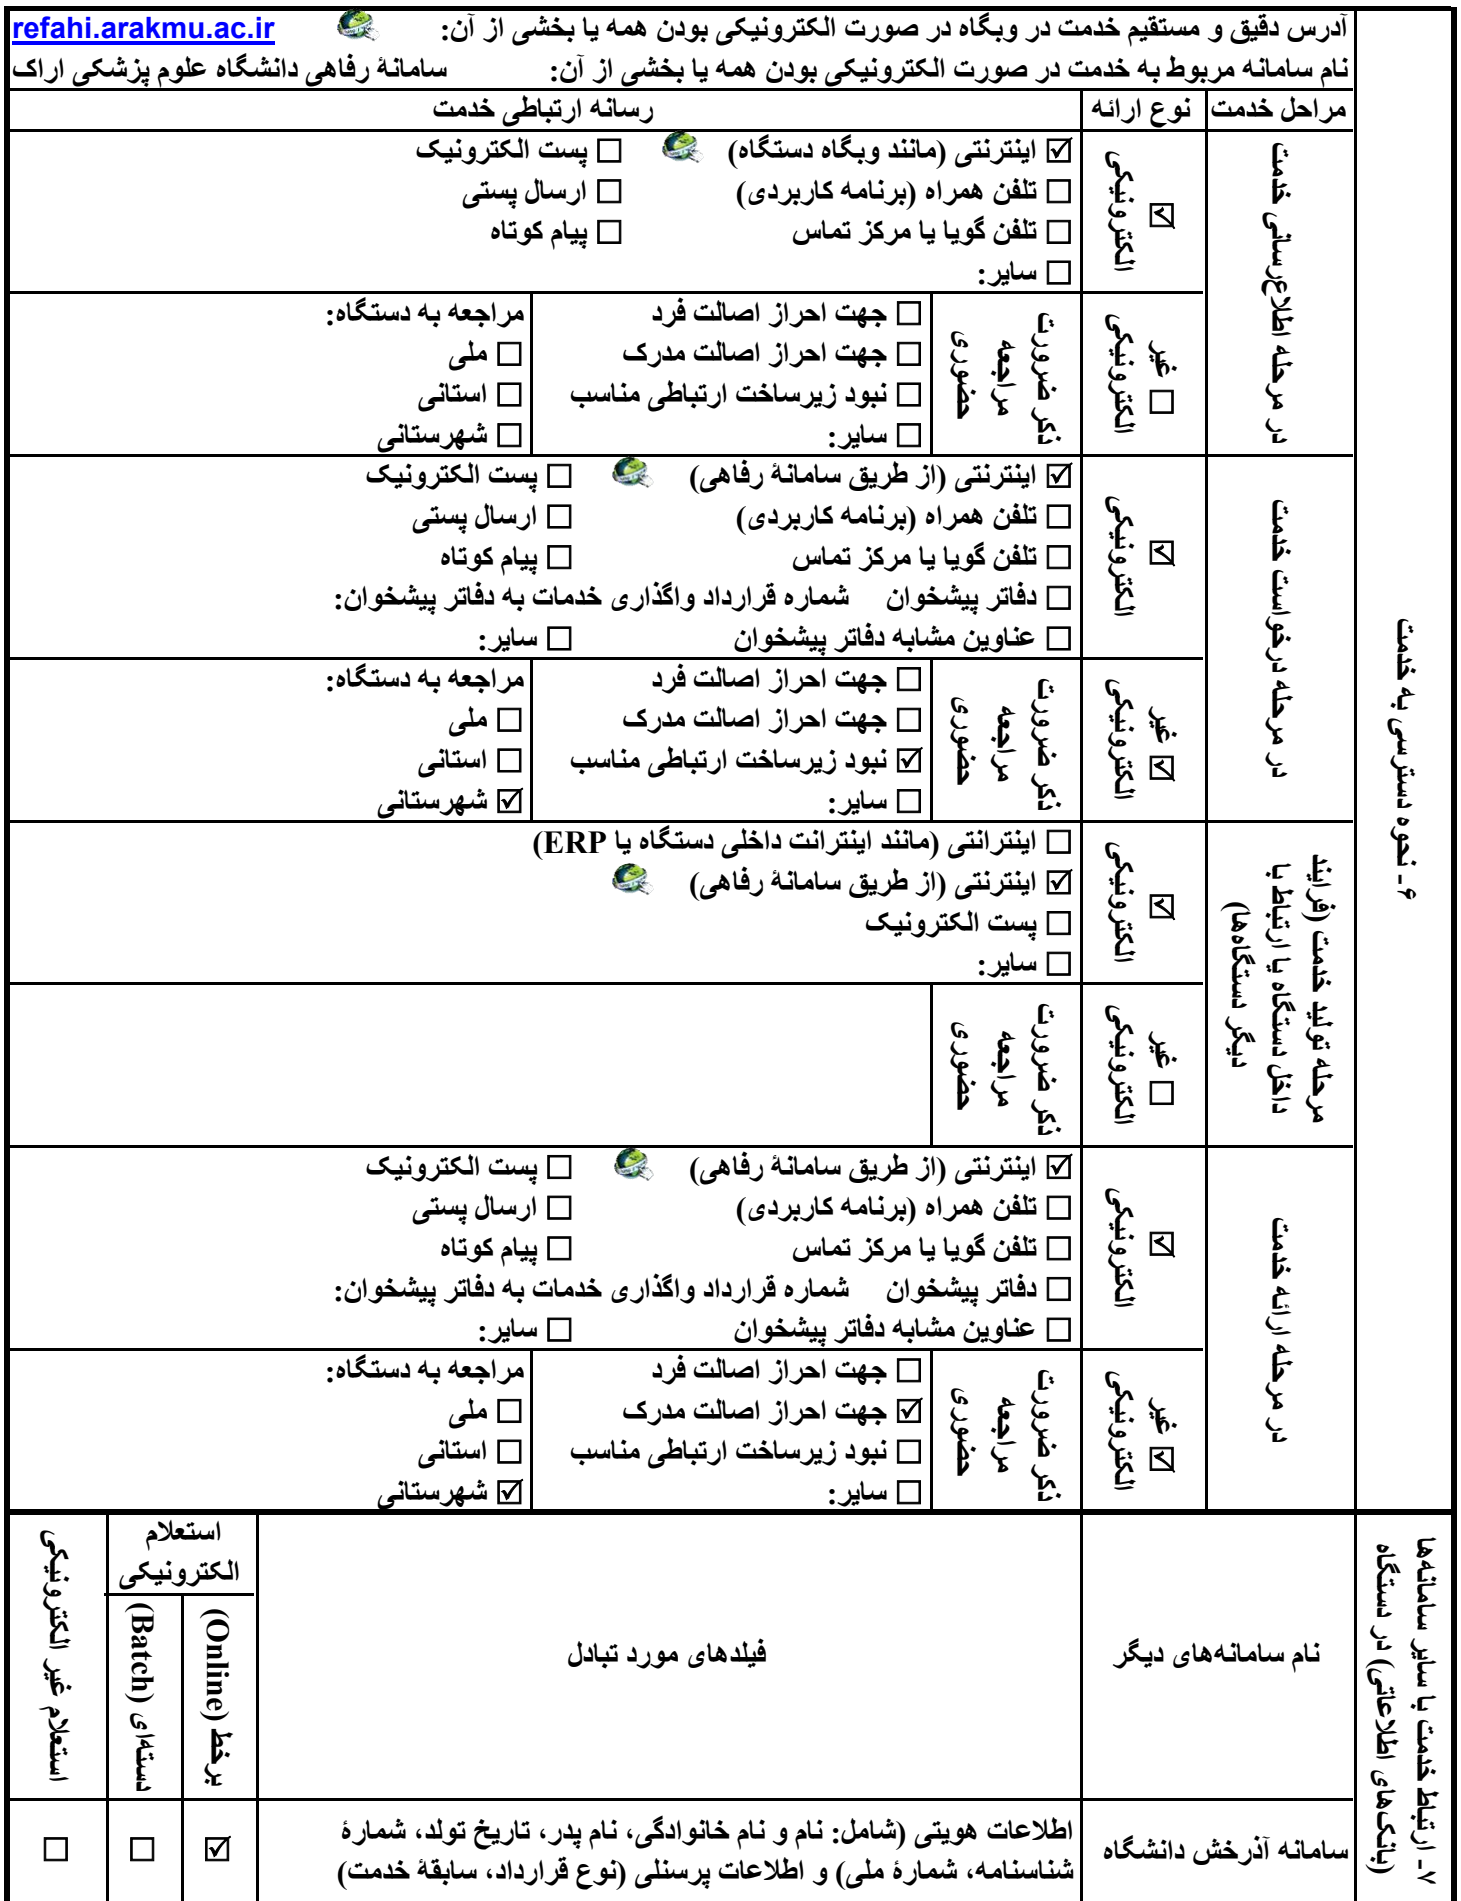 آدرس دقیق و مستقیم خدمت در وبگاه در صورت الکترونیکی بودن همه یا بخشی از آن: refahi.arakmu.ac.ir
نام سامانه مربوط به خدمت در صورت الکترونیکی بودن همه یا بخشی از آن: سامانۀ رفاهی دانشگاه علوم پزشکی اراک
۶ـ نحوه دسترسی به خدمت
مراحل خدمت نوع ارائه رسانه ارتباطی خدمت
در مرحله اطلاع‌رسانی خدمت
☑ الکترونیکی
☑ اینترنتی (مانند وبگاه دستگاه) ☐ پست الکترونیک
☐ تلفن همراه (برنامه کاربردی) ☐ ارسال پستی
☐ تلفن گویا یا مرکز تماس ☐ پیام کوتاه
☐ سایر:
☐ غیر الکترونیکی
ذکر ضرورت
مراجعه
حضوری
☐ جهت احراز اصالت فرد مراجعه به دستگاه:
☐ جهت احراز اصالت مدرک ☐ ملی
☐ نبود زیرساخت ارتباطی مناسب ☐ استانی
☐ سایر: ☐ شهرستانی
در مرحله درخواست خدمت
☑ الکترونیکی
☑ اینترنتی (از طریق سامانۀ رفاهی) ☐ پست الکترونیک
☐ تلفن همراه (برنامه کاربردی) ☐ ارسال پستی
☐ تلفن گویا یا مرکز تماس ☐ پیام کوتاه
☐ دفاتر پیشخوان شماره قرارداد واگذاری خدمات به دفاتر پیشخوان:
☐ عناوین مشابه دفاتر پیشخوان ☐ سایر:
☑ غیر الکترونیکی
ذکر ضرورت
مراجعه
حضوری
☐ جهت احراز اصالت فرد مراجعه به دستگاه:
☐ جهت احراز اصالت مدرک ☐ ملی
☑ نبود زیرساخت ارتباطی مناسب ☐ استانی
☐ سایر: ☑ شهرستانی
مرحله تولید خدمت (فرایند
داخل دستگاه یا ارتباط با
دیگر دستگاه‌ها)
☑ الکترونیکی
☐ اینترانتی (مانند اینترانت داخلی دستگاه یا ERP)
☑ اینترنتی (از طریق سامانۀ رفاهی)
☐ پست الکترونیک
☐ سایر:
☐ غیر الکترونیکی
ذکر ضرورت
مراجعه
حضوری
در مرحله ارائه خدمت
☑ الکترونیکی
☑ اینترنتی (از طریق سامانۀ رفاهی) ☐ پست الکترونیک
☐ تلفن همراه (برنامه کاربردی) ☐ ارسال پستی
☐ تلفن گویا یا مرکز تماس ☐ پیام کوتاه
☐ دفاتر پیشخوان شماره قرارداد واگذاری خدمات به دفاتر پیشخوان:
☐ عناوین مشابه دفاتر پیشخوان ☐ سایر:
☑ غیر الکترونیکی
ذکر ضرورت
مراجعه
حضوری
☐ جهت احراز اصالت فرد مراجعه به دستگاه:
☑ جهت احراز اصالت مدرک ☐ ملی
☐ نبود زیرساخت ارتباطی مناسب ☐ استانی
☐ سایر: ☑ شهرستانی
۷ـ ارتباط خدمت با سایر سامانه‌ها
(بانک‌های اطلاعاتی) در دستگاه
نام سامانه‌های دیگر
فیلدهای مورد تبادل
استعلام
الکترونیکی
برخط (Online)
دسته‌ای (Batch)
استعلام غیر الکترونیکی
سامانه آذرخش دانشگاه
اطلاعات هویتی (شامل: نام و نام خانوادگی، نام پدر، تاریخ تولد، شمارۀ
شناسنامه، شمارۀ ملی) و اطلاعات پرسنلی (نوع قرارداد، سابقۀ خدمت)
☑ ☐ ☐